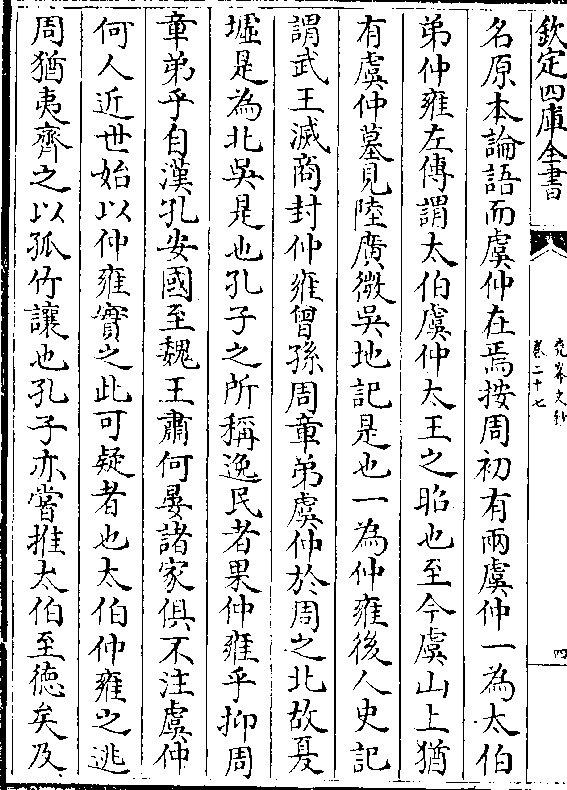 欽定四庫全書
堯峯文鈔
卷二十七
四
名原本論語而虞仲在焉按周初有兩虞仲一為太伯
弟仲雍左傳謂太伯虞仲太王之昭也至今虞山上猶
有虞仲墓見陸廣微吳地記是也一為仲雍後人史記
謂武王滅商封仲雍曾孫周章弟虞仲於周之北故夏
墟是為北吳是也孔子之所稱逸民者果仲雍乎抑周
章弟乎自漢孔安國至魏王肅何晏諸家俱不注虞仲
何人近世始以仲雍實之此可疑者也太伯仲雍之逃
周猶夷齊之以孤竹讓也孔子亦嘗推太伯至德矣及